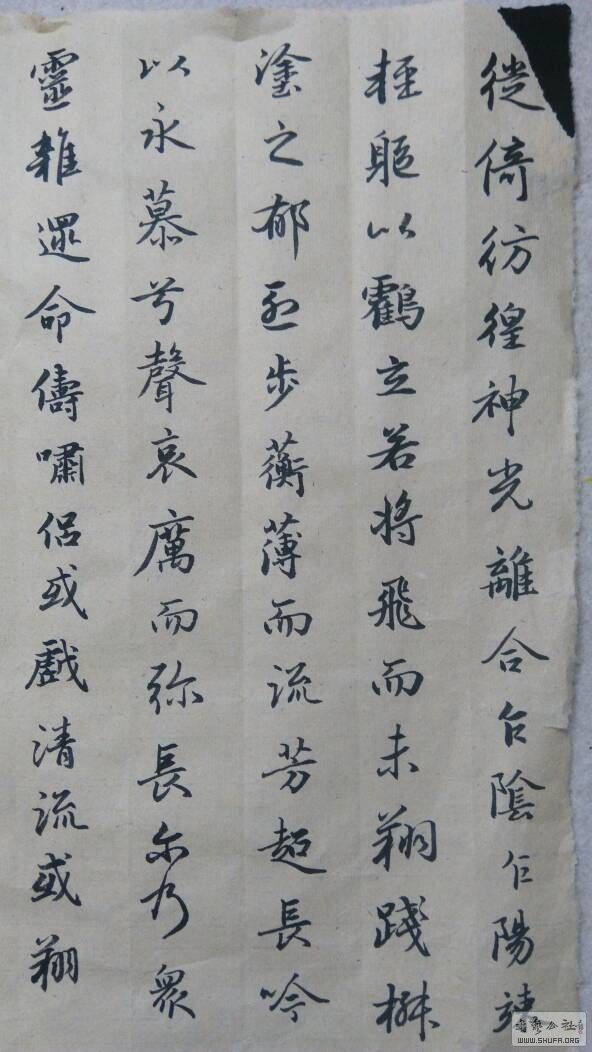 徙倚彷徨神光離合乍陰乍陽竦
輕軀以鶴立若將飛而未翔踐椒
塗之郁烈步蘅薄而流芳超長吟
以永慕兮聲哀厲而弥長尔乃衆
靈雜遝命儔嘯侶或戲清流或翔
WWW.SHUFA.ORG